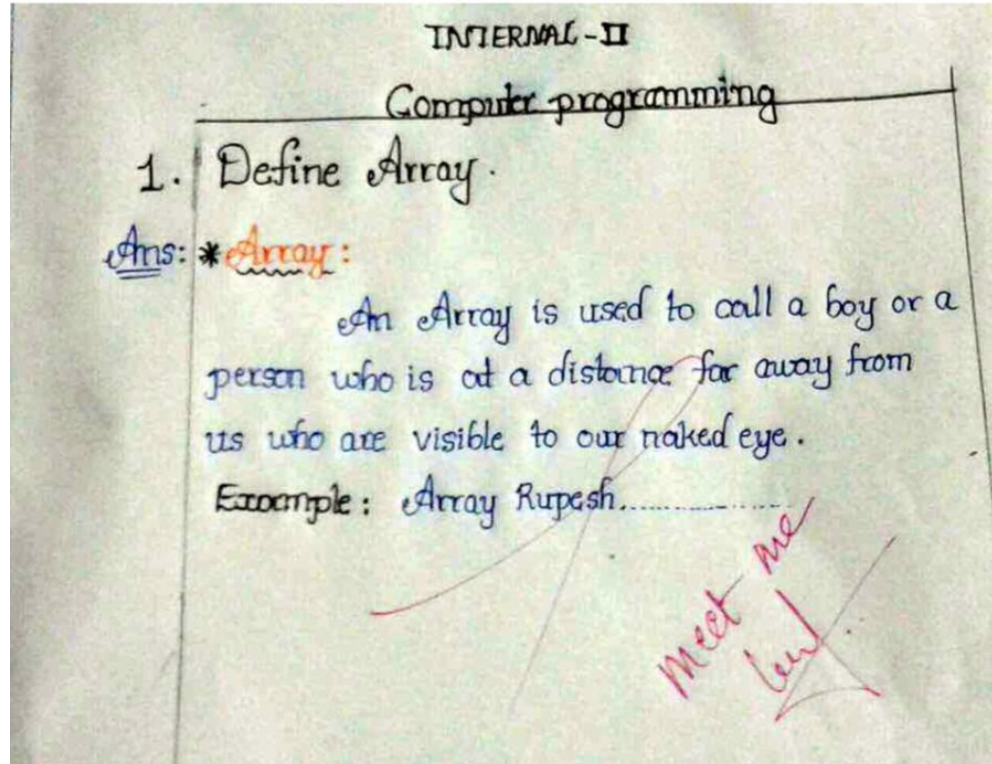 INTERNAL-II
Computer programming
1. Define Array.
Ans: *Array:
An Array is used to call a boy or a
person who is at a distance far away from
us who are visible to our naked eye.
Example: Array Rupesh..................
Meet me